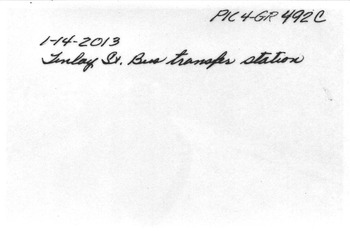 PIC 4-GR 492C
1-14-2013
Finlay St. Bus transfer station